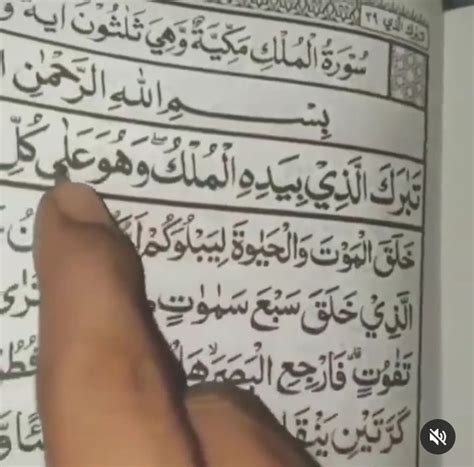 تبرك الذي ٢٩
سُوْرَةُ الْمُلْكِ مَكِّيَّةٌ وَّهِيَ ثَلٰثُوْنَ اٰيَةً وَّ
بِسْمِ اللّٰهِ الرَّحْمٰنِ
تَبٰرَكَ الَّذِيْ بِيَدِهِ الْمُلْكُ ۖ وَهُوَ عَلٰى كُلِّ
خَلَقَ الْمَوْتَ وَالْحَيٰوةَ لِيَبْلُوَكُمْ
الَّذِيْ خَلَقَ سَبْعَ سَمٰوٰتٍ
تَفٰوُتٍ ۗ فَارْجِعِ الْبَصَرَ ۙ هَلْ
كَرَّتَيْنِ